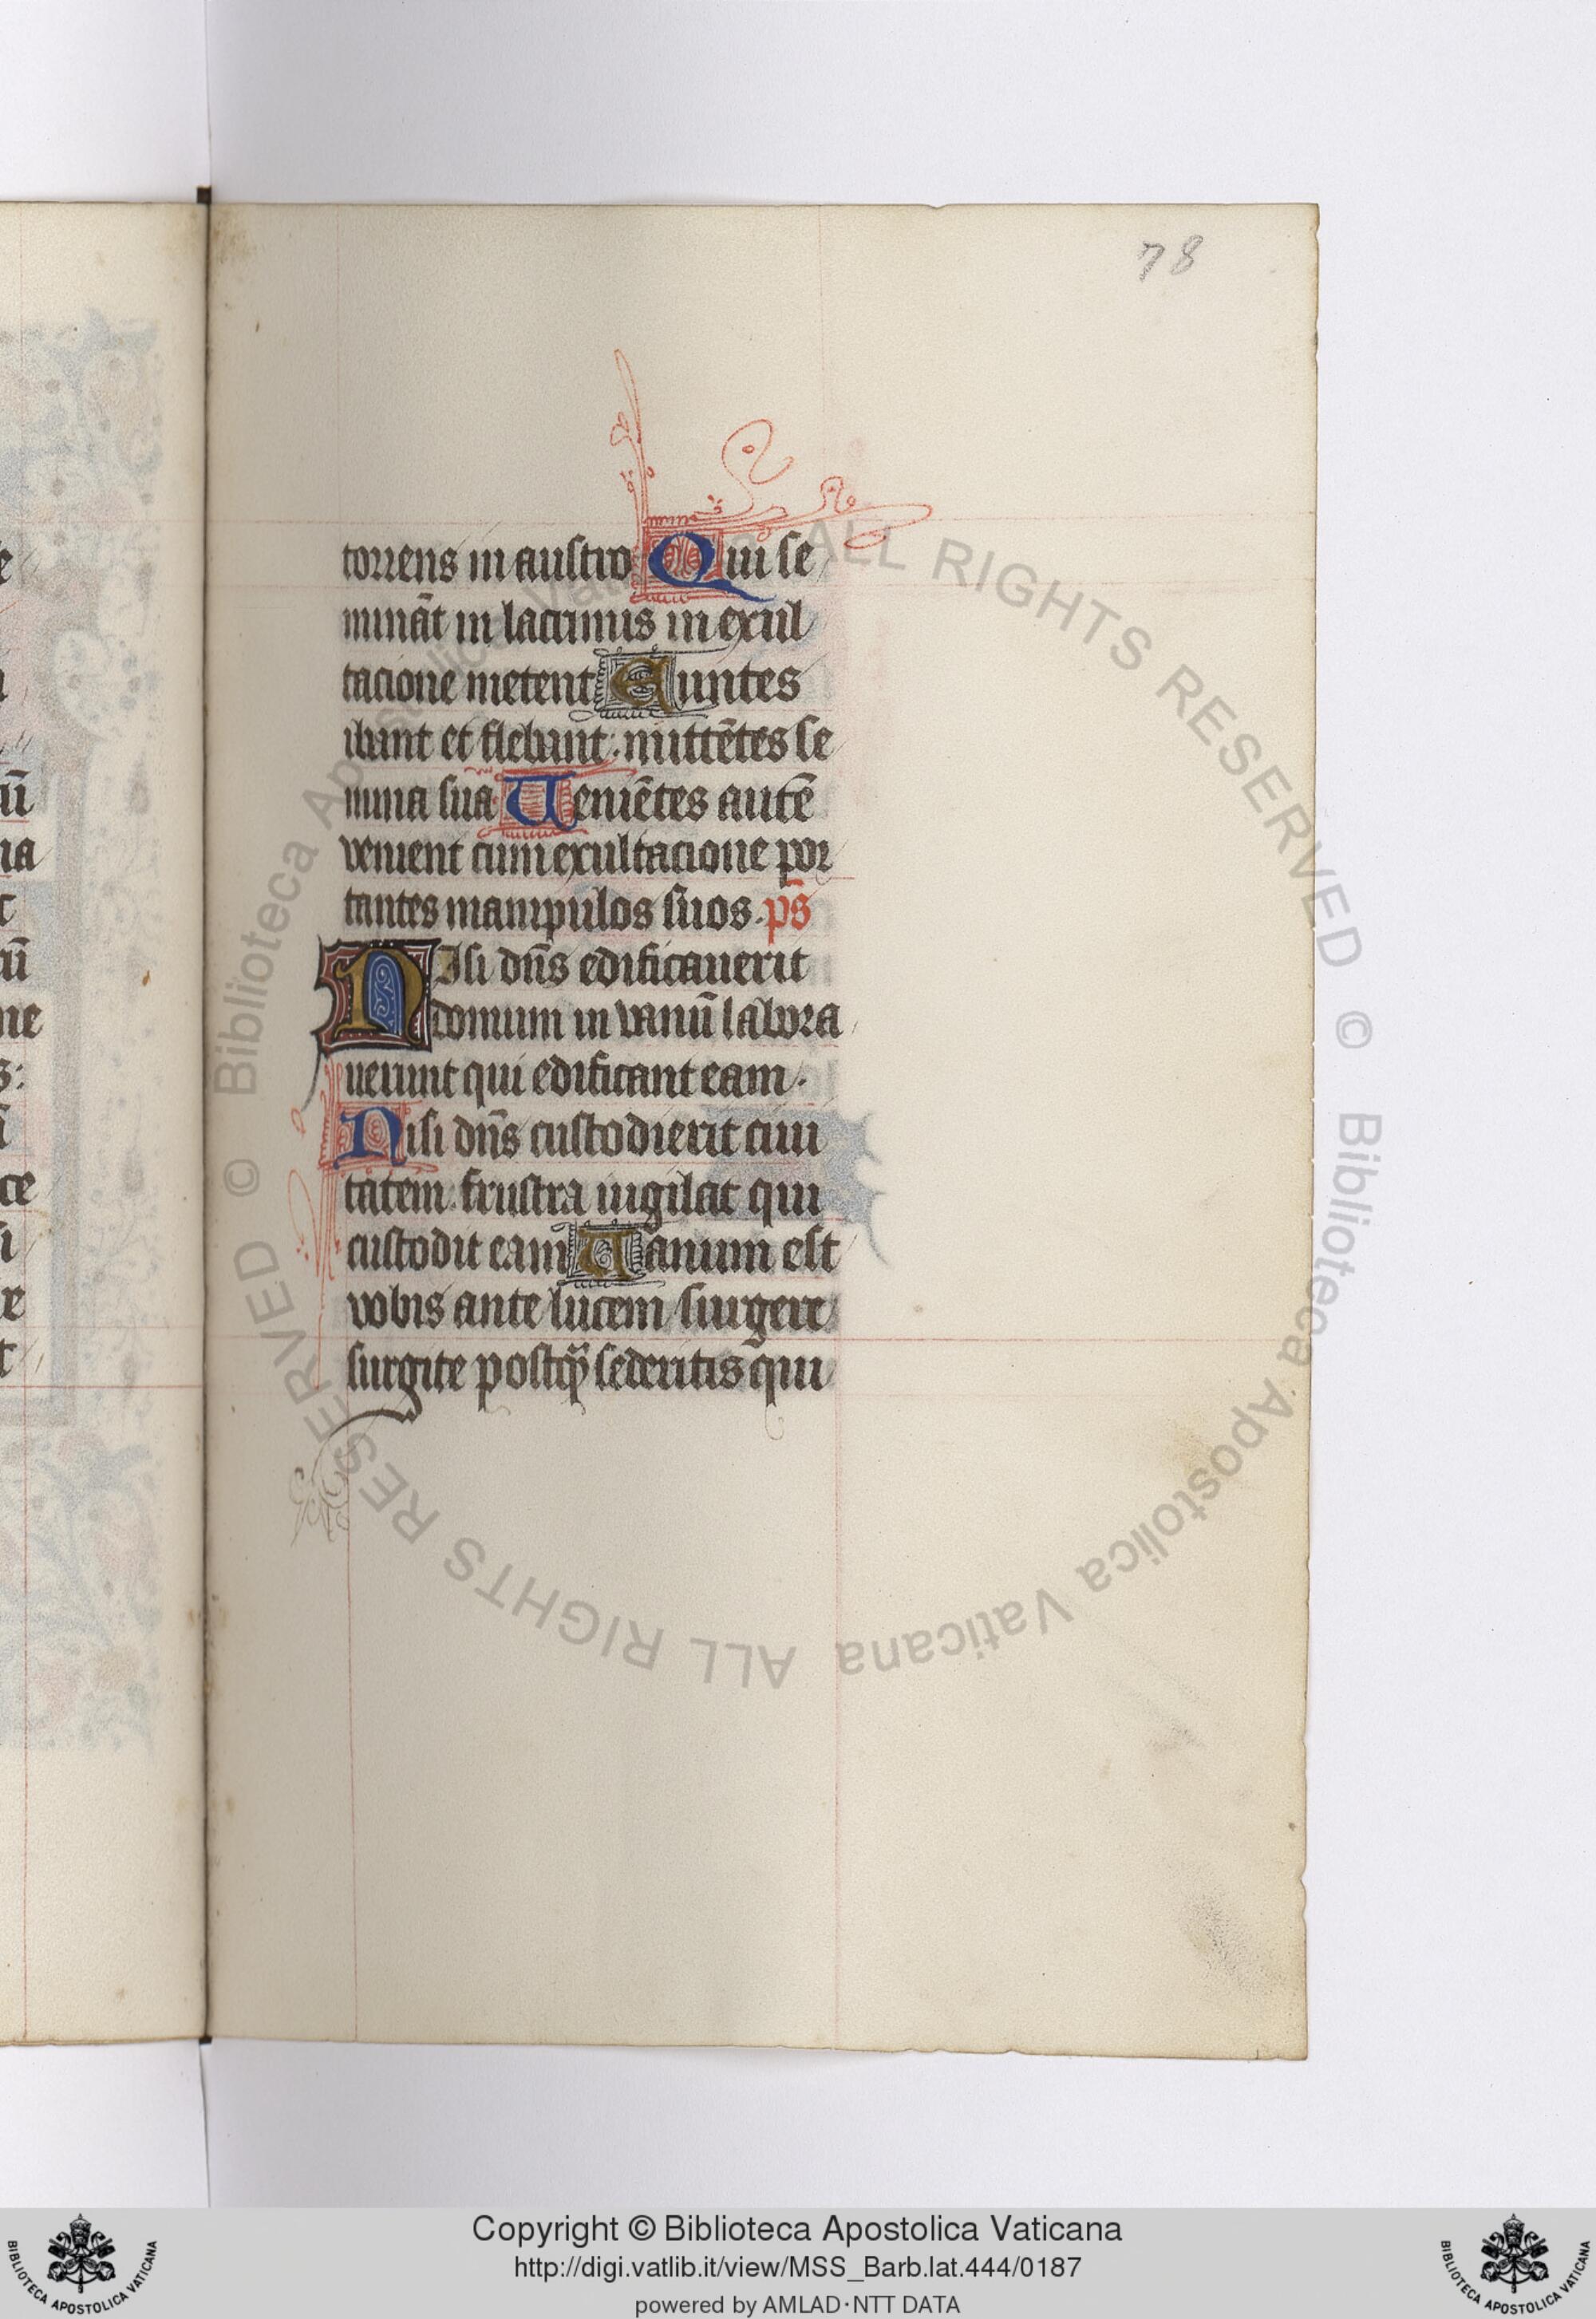 78
torrens in austro Qui se
minãt in lacrimis in exul
tacione metent Euntes
ibant et flebant: mittẽtes se
mina sua Veniẽtes autẽ
venient cum exultacione por
tantes manipulos suos. p̄s
NIsi dn̄s edificauerit
domum in vanũ labora
uerunt qui edificant eam.
Nisi dn̄s custodierit ciui
tatem. frustra uigilat qui
custodit eam Vanum est
vobis ante lucem surgere
surgite postq̃ sederitis qui
© Biblioteca Apostolica Vaticana ALL RIGHTS RESERVED © Biblioteca Apostolica Vaticana ALL RIGHTS RESERVED
Copyright © Biblioteca Apostolica Vaticana
http://digi.vatlib.it/view/MSS_Barb.lat.444/0187
powered by AMLAD·NTT DATA
BIBLIOTECA APOSTOLICA VATICANA
BIBLIOTECA APOSTOLICA VATICANA